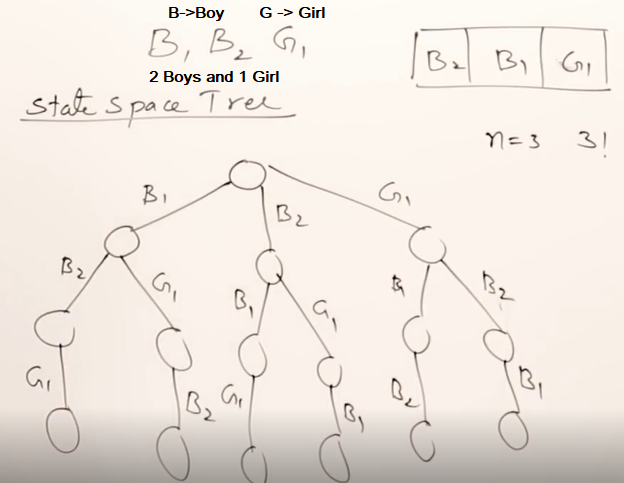 B->Boy G -> Girl
B₁ B₂ G₁
2 Boys and 1 Girl
B₂ B₁ G₁
State Space Tree
n=3 3!
B₁ B₂ G₁
B₂ G₁ B₁ G₁ B₁ B₂
G₁ B₂ G₁ B₁ B₂ B₁